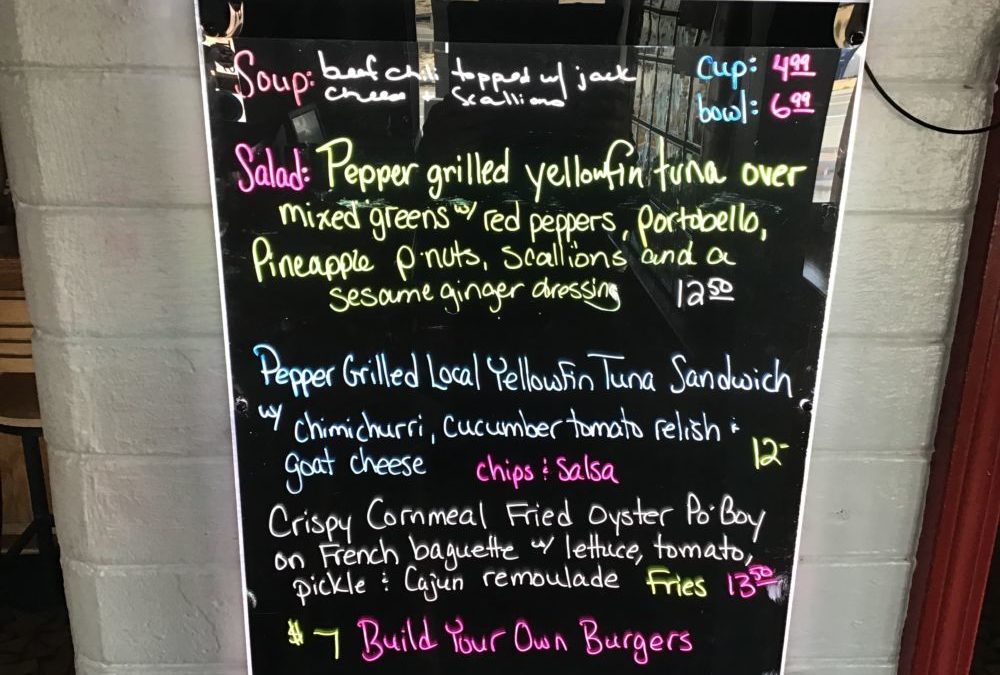 Soup: beef chili topped w/ jack cup: 4.99
cheese + scallions bowl: 6.99
Salad: Pepper grilled yellowfin tuna over
mixed greens w/ red peppers, portobello,
Pineapple p·nuts, scallions and a
sesame ginger dressing 12.50
Pepper Grilled Local Yellowfin Tuna Sandwich
w/ chimichurri, cucumber tomato relish +
goat cheese chips & salsa 12-
Crispy Cornmeal Fried Oyster Po·Boy
on French baguette w/ lettuce, tomato,
pickle & Cajun remoulade Fries 13.50
$7 Build Your Own Burgers